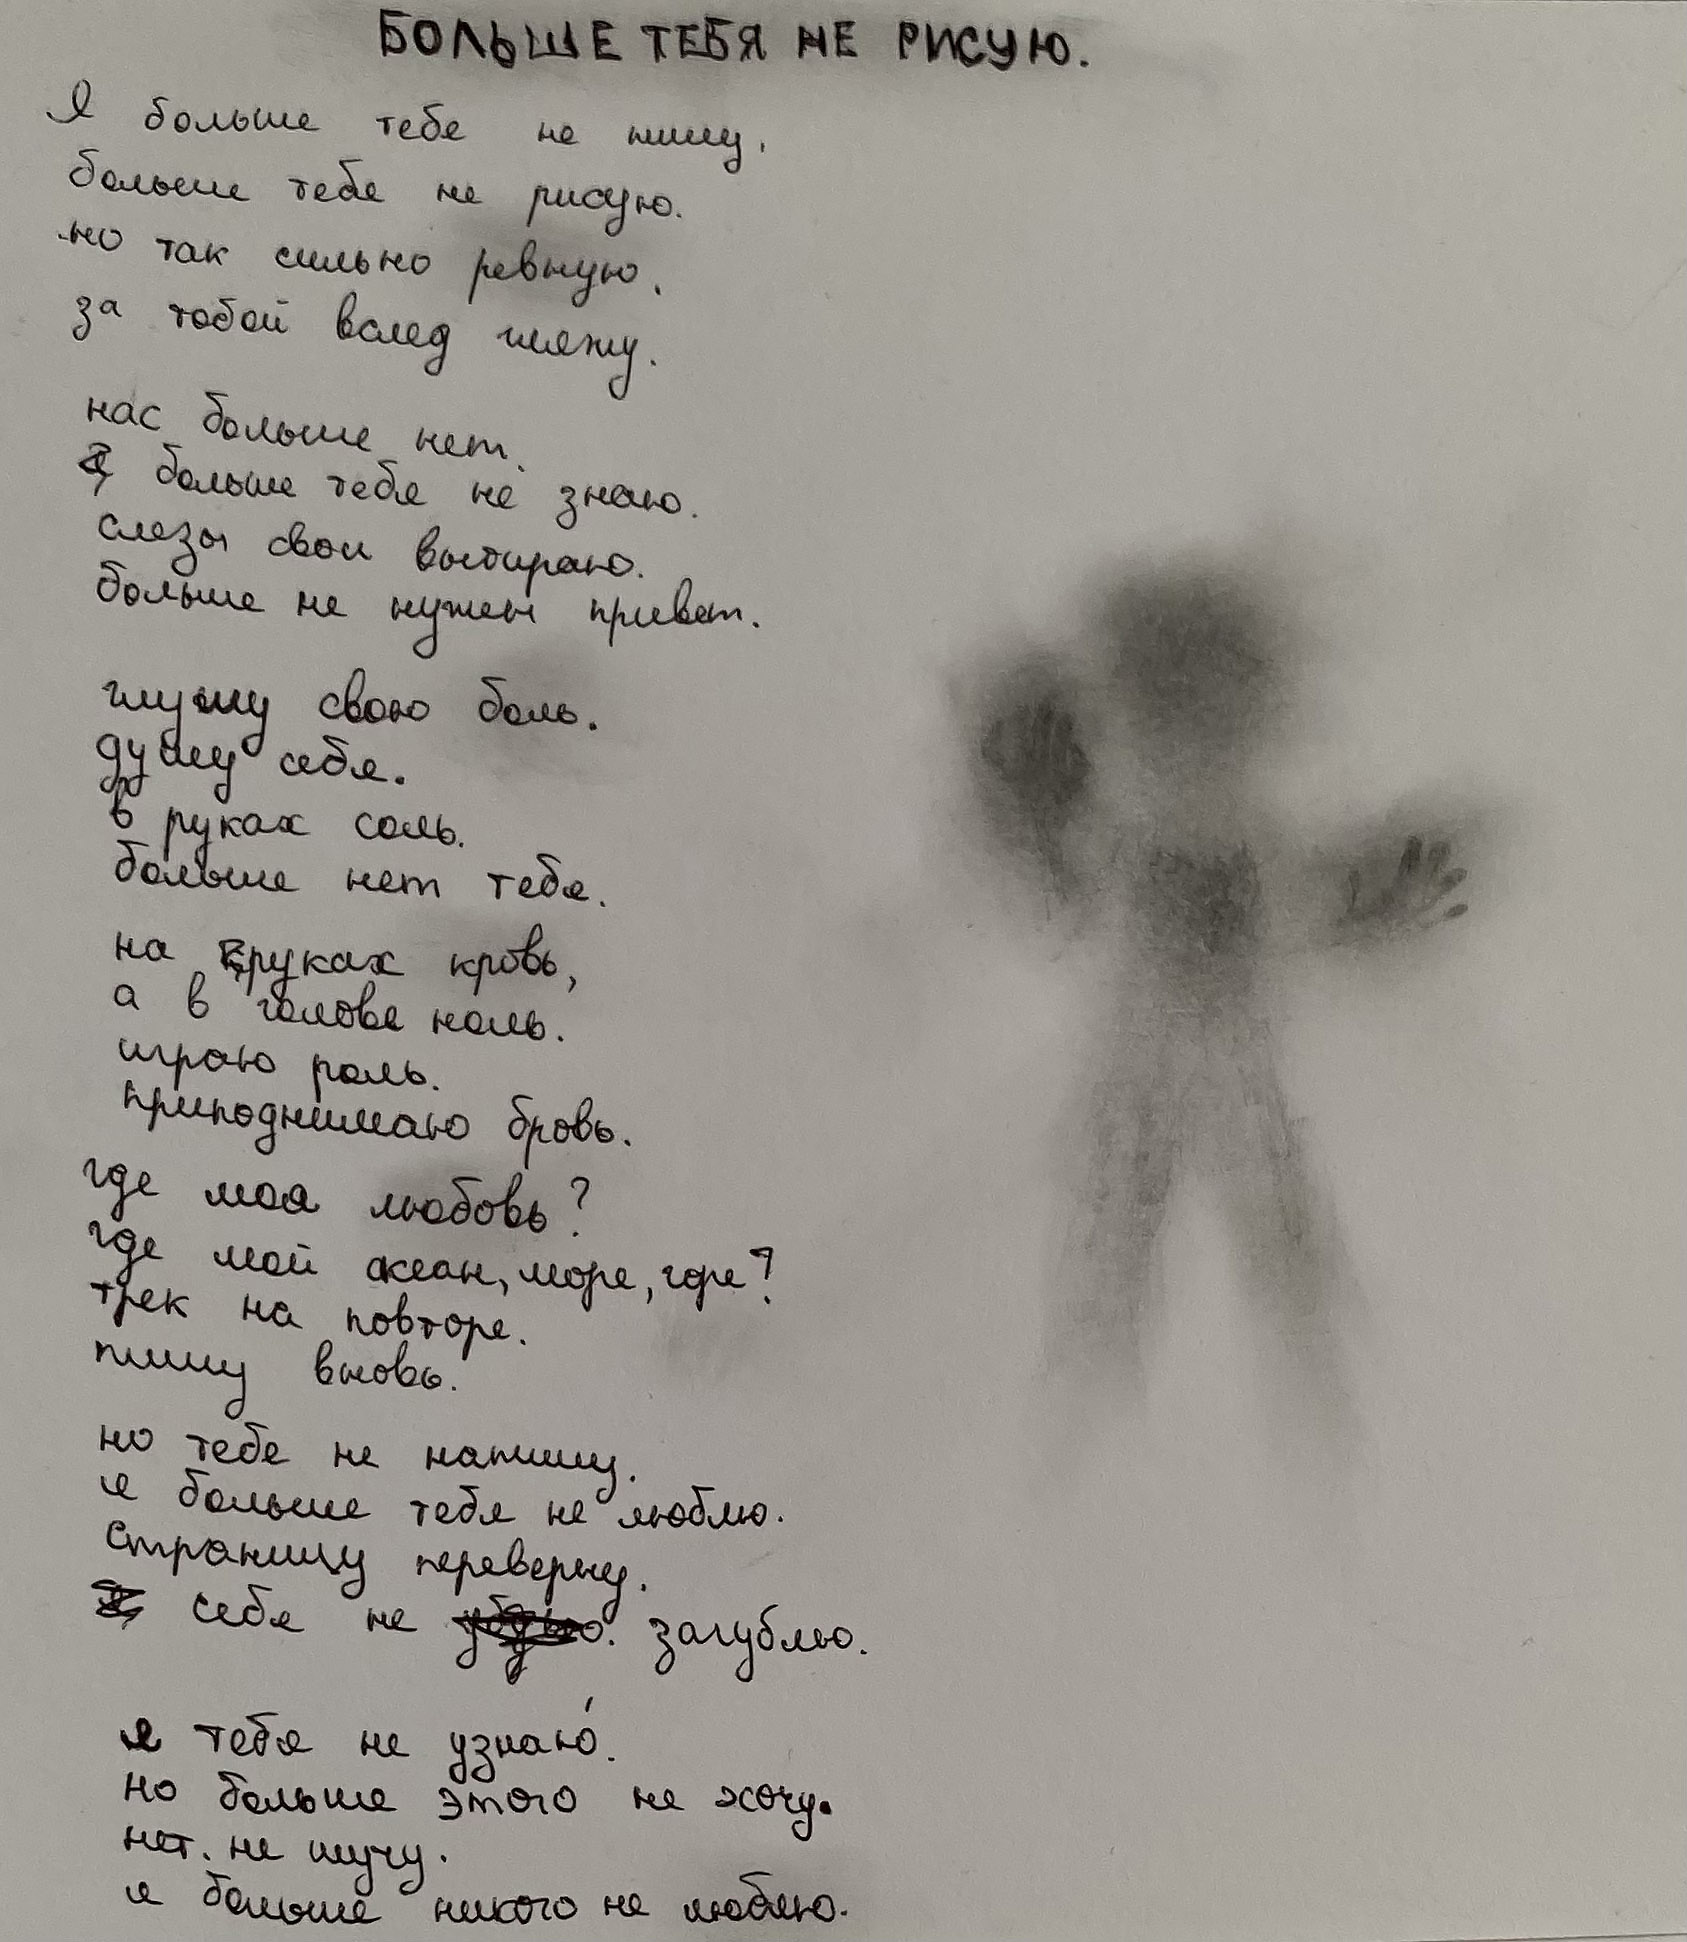 БОЛЬШЕ ТЕБЯ НЕ РИСУЮ.
Я больше тебе не пишу.
больше тебя не рисую.
но так сильно ревную.
за тобой вслед гляжу.
нас больше нет.
больше тебя не знаю.
слезы свои вытираю.
больше не нужен привет.
глушу свою боль.
душу себя.
в руках соль.
больше нет тебя.
на руках кровь,
а в голове ноль.
играю роль.
приподнимаю бровь.
где моя любовь?
где мой океан, море, горе?
трек на повторе.
пишу вновь.
но тебе не напишу.
я больше тебя не люблю.
страницу переверну.
себя не загублю.
я тебя не узнаю́.
но больше этого не хочу.
нет. не шучу.
я больше никого не люблю.